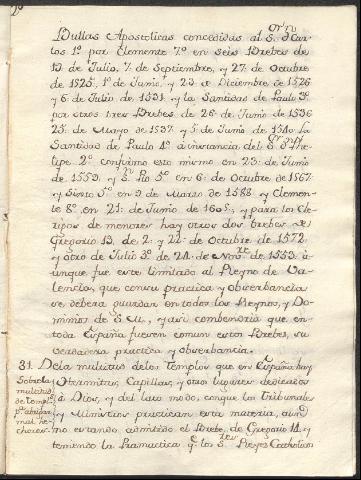 Bullas Apostolicas concedidas al Sor. Dn. Car
los 1º por Clemente 7º en seis Brebes de
13 de Julio, 7 de Septiembre, y 27 de Octubre
de 1525, 1º de Junio, y 23 de Diciembre de 1526
y 6 de Julio de 1531 y la Santidas de Paulo 3º
por otros tres Brebes de 26 de Junio de 1536
25 de Mayo de 1537 y 5 de Junio de 1540 La
Santidas de Paulo 4º a instancia del Sor. Dn. Phe
lipe 2º confirmo esto mismo en 23 de Junio
de 1559 y Sn. Pio 5º en 6 de Octubre de 1567
y Sixto 5º en 9 de Marzo de 1588 y Clemen
te 8º en 21 de Junio de 1605, y para los Cle
rigos de menores hay otros dos brebes de
Gregorio 13 de 2 y 22 de Octubre de 1572
y otro de Julio 3º de 24 de Novre. de 1553 a
unque fue este limitado al Reyno de Va
lencia, que con su practica y observancia
se debera guardar en todos los Reynos, y Do
minios de S.M., y asi combendria que en
toda España fuesen comun estos Brebes, su
verdadera practica y observancia.
31. De la multitus de los Templos que en España hay
Sobre la
multitus
de templs.
y Hermitas, Capillas, y otros lugares dedicados
à Dios, y del laxo modo, con que los Tribunales
y Ministros practican esta materia, aun
no estando admitido el Brebe de Gregorio 14 y
teniendo la Pramactica qe. los Stres. Reyes Catholicos